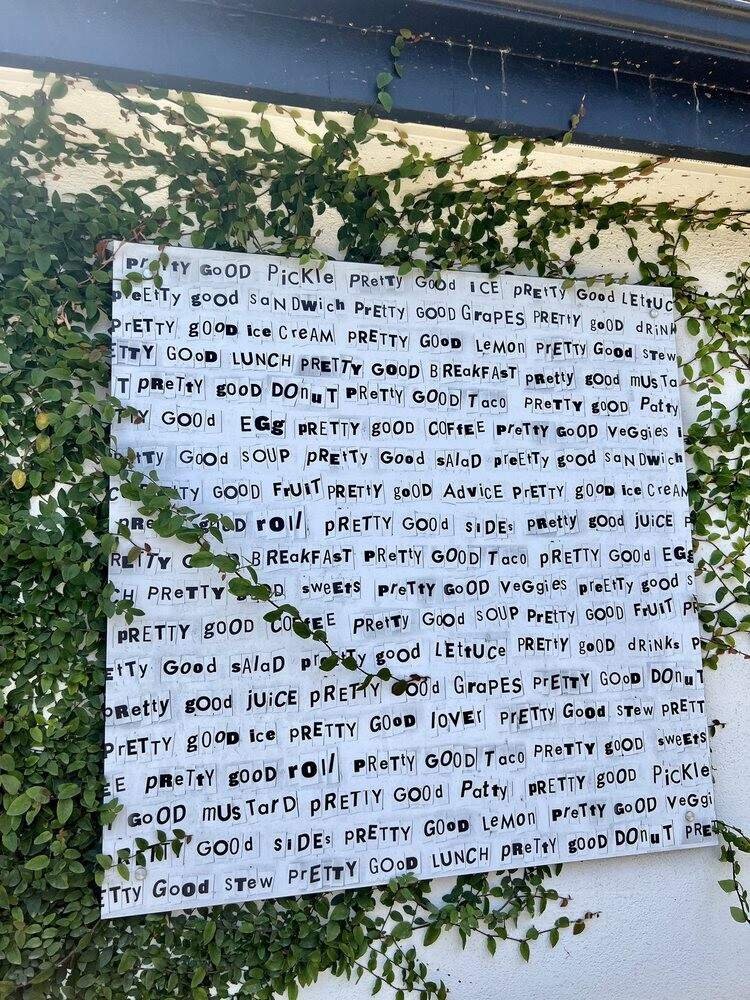 prettY GOOD PiCKlE PRettY Good iCE pREtTy Good LEttUC
preEtTy good saNDWich PrETTY GOOD GraPES PREtty goOD dRiNK
PrETTY gOOD ice CreAM PRETTY GOOD LeMon PrETTY Good STew
ETTY GOoD LUNCH pRETTY GOOD BREakFAST pRetty good mUsTa
T pReTtY gooD DOnuT PRetTy GOOD Taco PReTTY goOD Patty
TY GOOd EGg pRETTY gOOD COffEE PreTtY GoOD VeGgies
tTy GoOd SOUP pREtTy Good sAlaD preEtTy good saNDWich
TY GOOD FRUiT PRETTY goOD AdvicE PrETTY gOOD ice CreAM
pRe D roll pRETTY GOOd siDEs pRetty good juiCE P
BREakFAST PReTtY GOOD Taco pRETTY GOOd EGg
CH PReTTY sweEts preTtY GoOD VeGgies preEtTy good s
pRETTY gOOD COffEE PRetTY Good SOUP PrETTY GOOD FruiT PR
EtTy Good sAlaD pretty good LEttUce PREtty goOD dRiNks P
pRetty good juiCE pRETTY GOOd GraPES PrETTY GOoD DOnuT
PrETTY gOOD ice pRETTY GOOD lOVEr PrETTy Good STew PRETT
EE pReTtY gooD roll PRetTy GOOD Taco PReTTY goOD sweEts
GoOD mUsTarD pRETTY GOOd Patty pRETTY gOOD PiCKlE
PRETTY GOOd siDEs PRETTY GOOD LeMon PreTtY GoOD VeGgi
ETTY Good STew PrETTY GOoD LUNCH pReTtY gooD DOnuT PRE